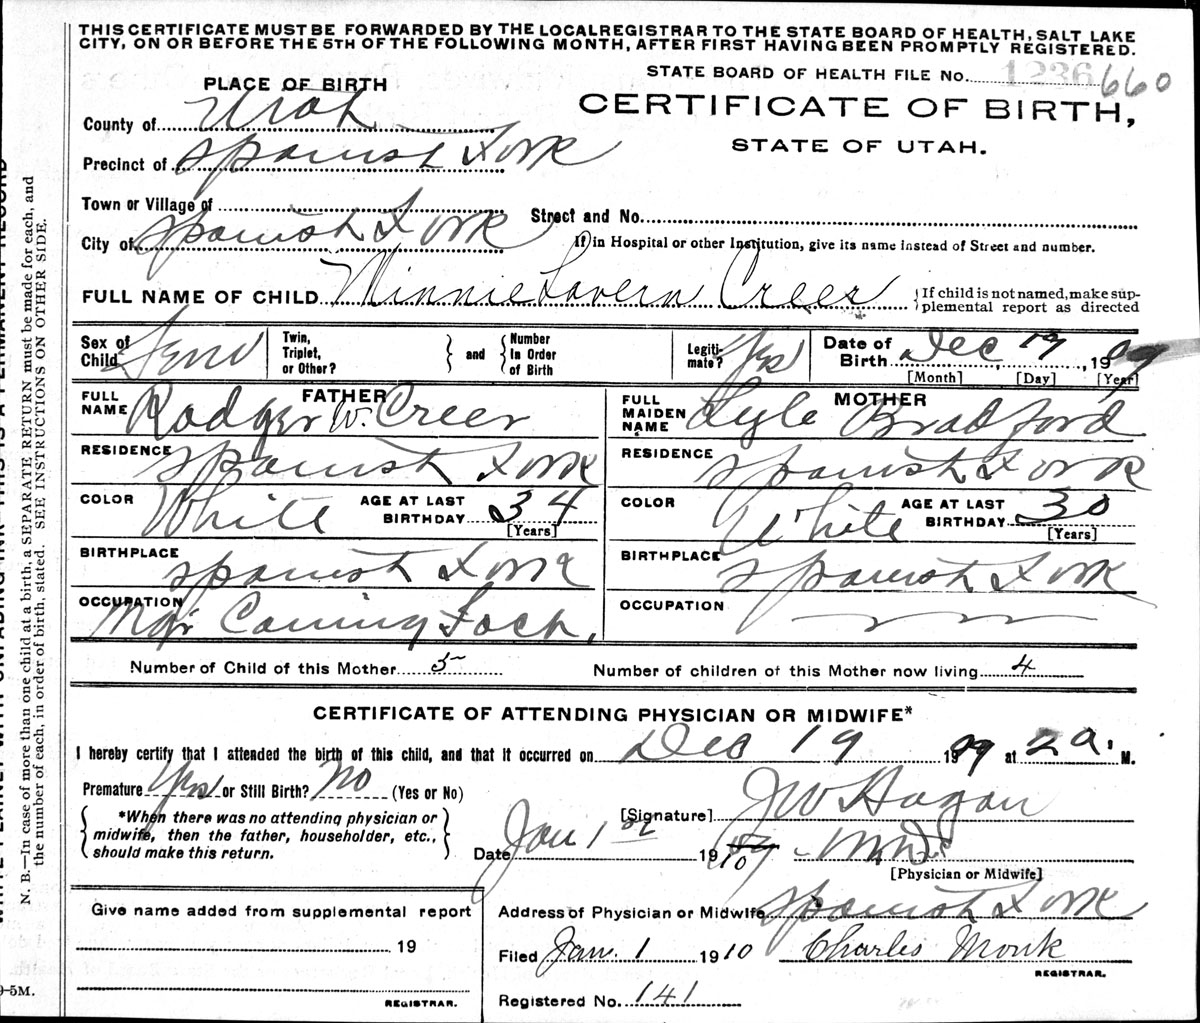 THIS CERTIFICATE MUST BE FORWARDED BY THE LOCALREGISTRAR TO THE STATE BOARD OF HEALTH, SALT LAKE
CITY, ON OR BEFORE THE 5TH OF THE FOLLOWING MONTH, AFTER FIRST HAVING BEEN PROMPTLY REGISTERED.
STATE BOARD OF HEALTH FILE No. 1236 660
PLACE OF BIRTH
CERTIFICATE OF BIRTH,
STATE OF UTAH.
County of Utah
Precinct of Spanish Fork
Town or Village of
Street and No.
City of Spanish Fork
If in Hospital or other Institution, give its name instead of Street and number.
FULL NAME OF CHILD Minnie Lavern Creer
{If child is not named, make sup-
plemental report as directed
Sex of Child Fem
Twin, Triplet, or Other?
and
Number In Order of Birth
Legiti-mate? Yes
Date of Birth Dec 19, 1909
[Month] [Day] [Year]
FATHER
FULL NAME Rodger W. Creer
MOTHER
FULL MAIDEN NAME Lyle Bradford
RESIDENCE Spanish Fork
RESIDENCE Spanish Fork
COLOR White AGE AT LAST BIRTHDAY 34 [Years]
COLOR White AGE AT LAST BIRTHDAY 30 [Years]
BIRTHPLACE Spanish Fork
BIRTHPLACE Spanish Fork
OCCUPATION Mgr Caning Fact.
OCCUPATION
Number of Child of this Mother 5
Number of children of this Mother now living 4
CERTIFICATE OF ATTENDING PHYSICIAN OR MIDWIFE*
I hereby certify that I attended the birth of this child, and that it occurred on Dec 19 1909 at 2 a. M.
Premature Yes or Still Birth? No (Yes or No)
*When there was no attending physician or
midwife, then the father, householder, etc.,
should make this return.
[Signature] J W Hagan
Date Jan 1st 1910 M.D.
[Physician or Midwife]
Give name added from supplemental report
19
REGISTRAR.
Address of Physician or Midwife Spanish Fork
Filed Jan. 1 1910 Charles Monk
REGISTRAR.
Registered No. 141
N. B.—In case of more than one child at a birth, a SEPARATE RETURN must be made for each, and
the number of each, in order of birth, stated. SEE INSTRUCTIONS ON OTHER SIDE.
-5M.